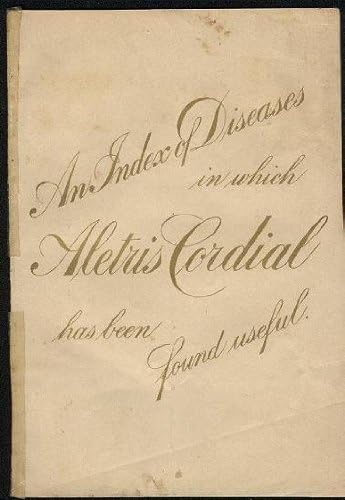 An Index of Diseases
in which
Aletris Cordial
has been
found useful.